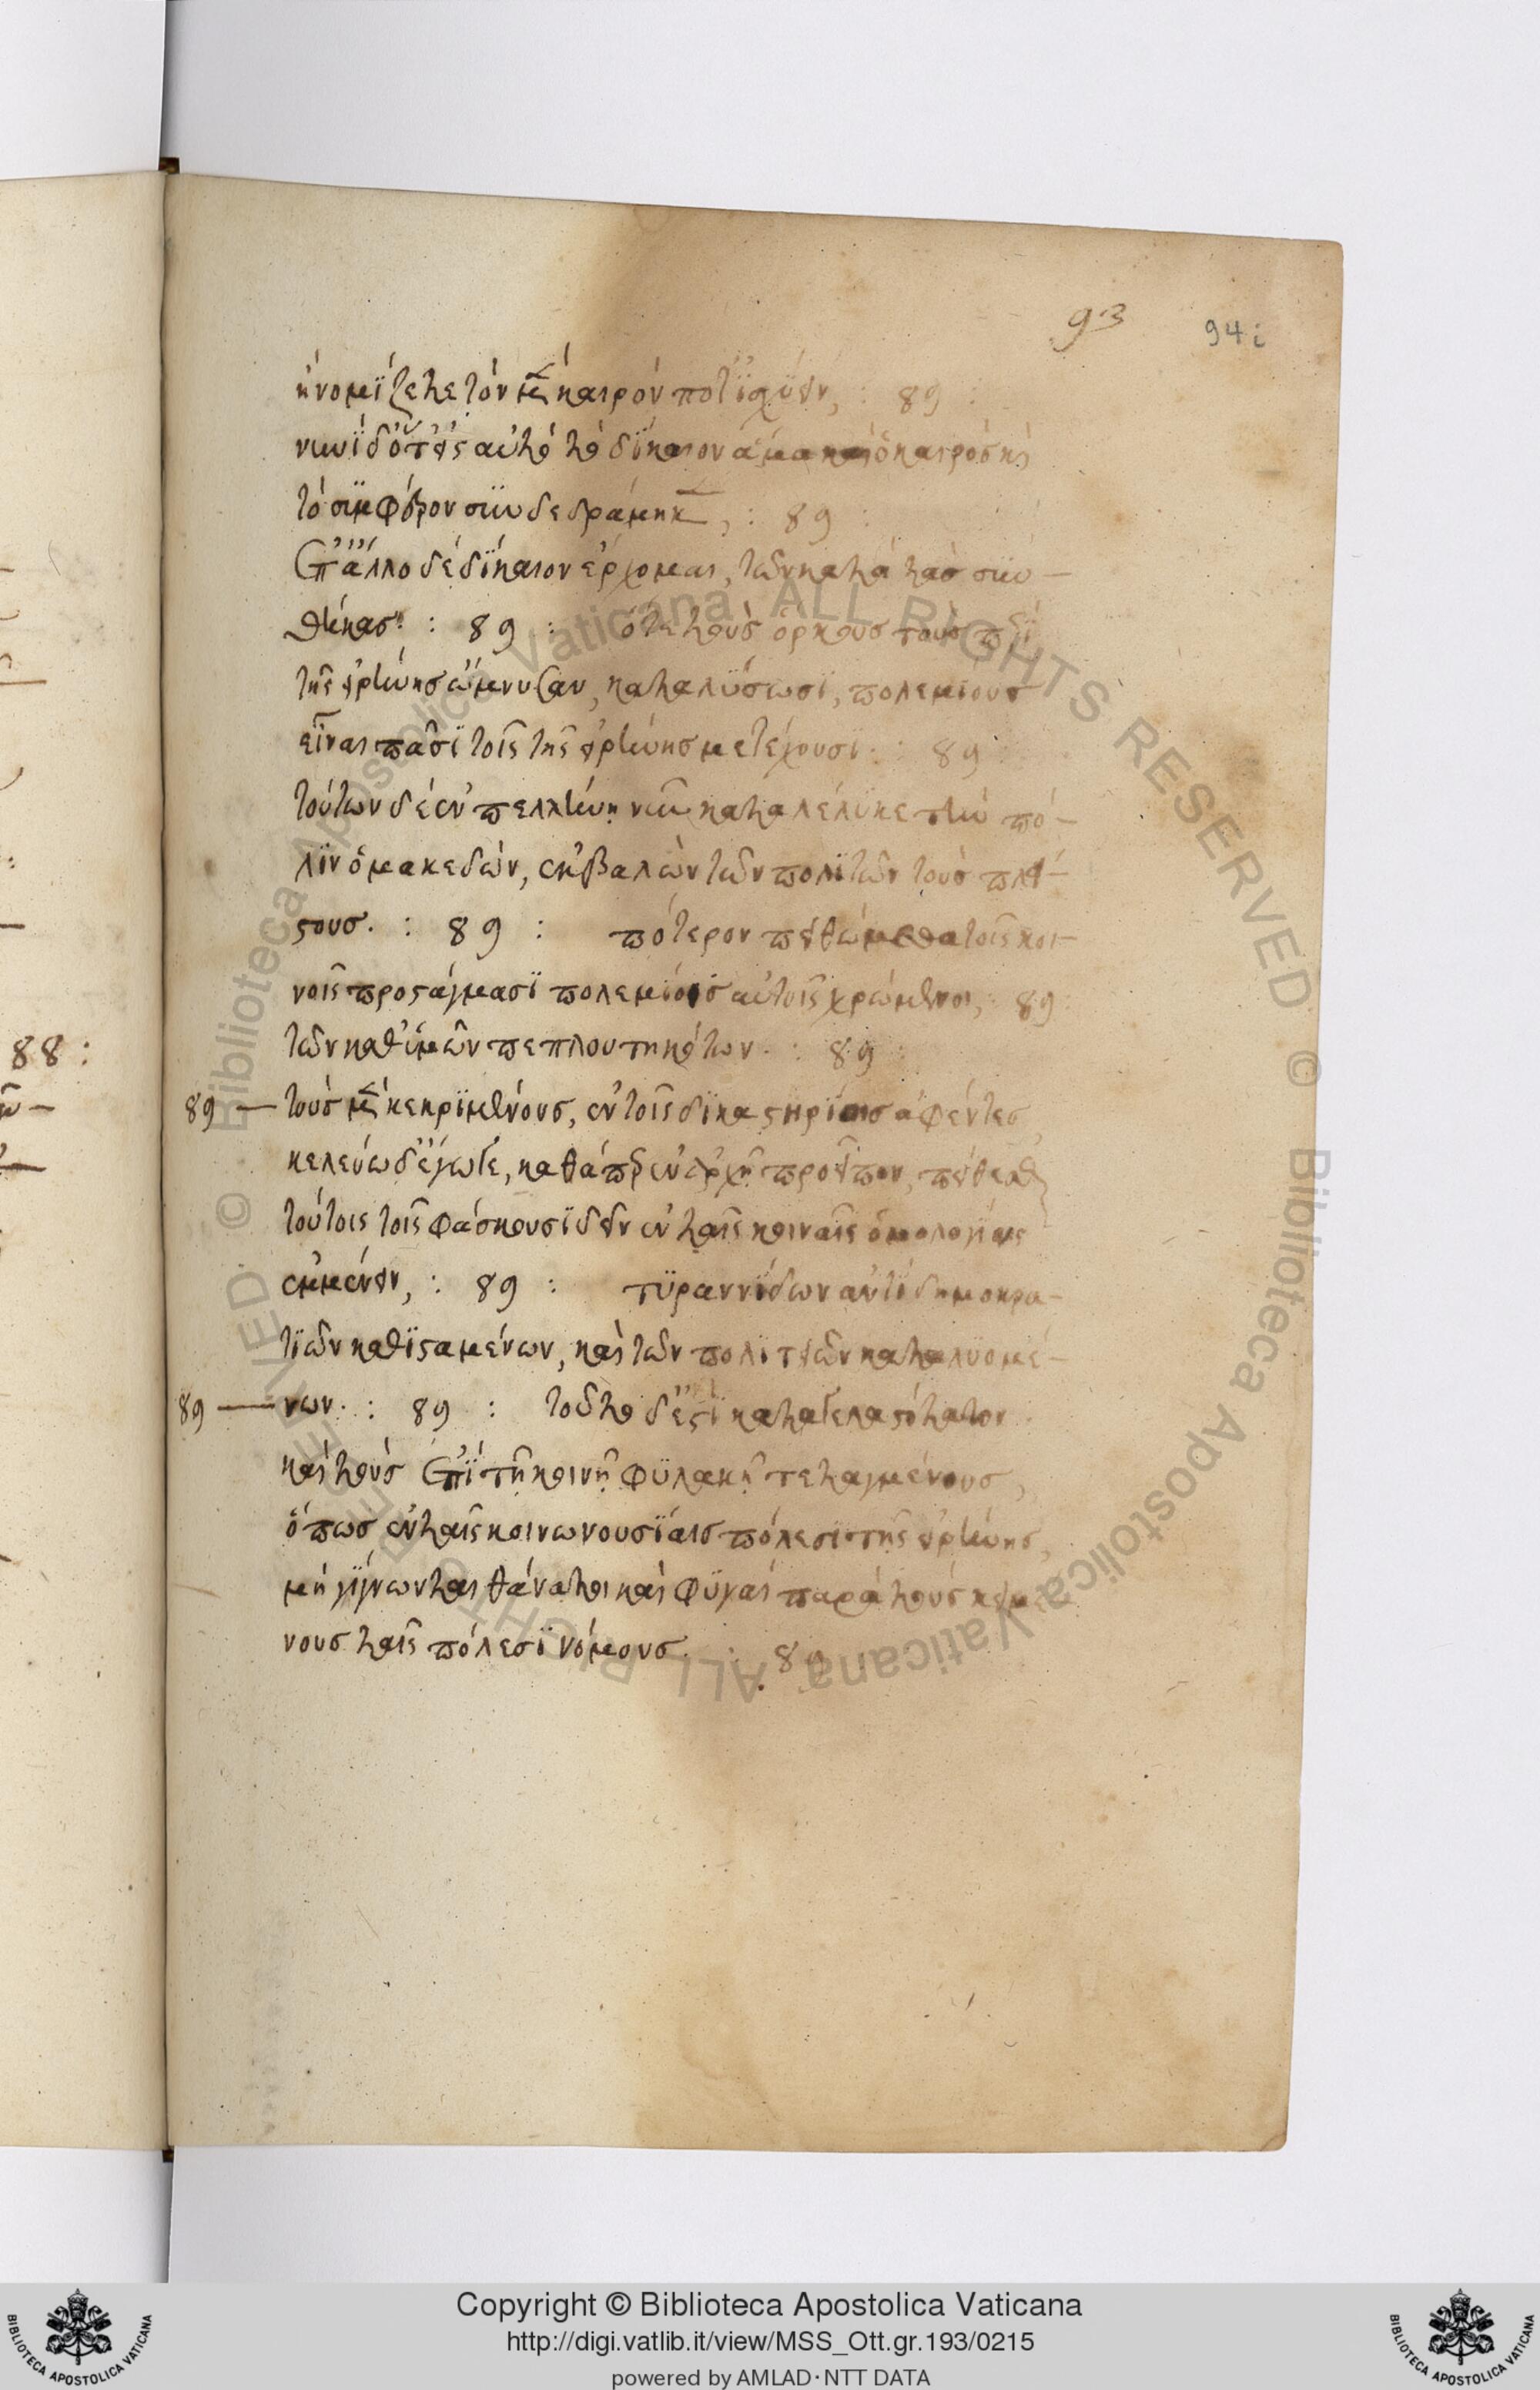 93 94i
ἢ νομίζετε τὸν μὲν καιρόν ποτ᾽ ἰσχύειν, : 89 :
νυνὶ δ᾽ ὁπότε εἰς αὐτὸ τὸ δίκαιον ἅμα καὶ ὁ καιρὸς καὶ
τὸ συμφέρον συνδεδράμηκεν, : 89 :
Ἐπ᾽ ἄλλο δὲ δίκαιον ἔρχομαι, τῶν κατὰ τὰς συν-
θήκας : 89 : ὅτε τοὺς ὅρκους τοὺς περὶ
τῆς εἰρήνης ὤμνυσαν, καταλύσωσι, πολεμίους
εἶναι πᾶσι τοῖς τῆς εἰρήνης μετέχουσι. : 89
τούτων δὲ ἐν πελλήνῃ νῦν καταλέλυκε τὴν πό-
λιν ὁ μακεδών, ἐκβαλὼν τῶν πολιτῶν τοὺς πλεί-
στους. : 89 : πότερον πειθώμεθα τοῖς κοι-
νοῖς προστάγμασι πολεμίοις αὐτοῖς χρώμενοι, : 89
τῶν καθ᾽ ἡμῶν πεπλουτηκότων. : 89 :
89 — τοὺς μὲν κεκριμένους, ἐν τοῖς δικαστηρίοις ἀφέντες
κελεύω δ᾽ ἔγωγε, καθάπερ ἐν ἀρχῇ προεῖπον, πείθεσθαι
τούτοις τοῖς φάσκουσι δεῖν ἐν ταῖς κοιναῖς ὁμολογίαις
ἐμμένειν, : 89 : τυραννίδων ἀντὶ δημοκρα-
τιῶν καθισταμένων, καὶ τῶν πολιτειῶν καταλυομέ-
89 — νων. : 89 : τοῦτο δ᾽ ἔστι καταγελαστότατον
καὶ τοὺς ἐπὶ τῇ κοινῇ φυλακῇ τεταγμένους,
ὅπως ἐν ταῖς κοινωνούσαις πόλεσι τῆς εἰρήνης,
μὴ γίγνωνται θάνατοι καὶ φυγαὶ παρὰ τοὺς κειμέ-
νους ταῖς πόλεσι νόμους. : 89
88 :
Copyright © Biblioteca Apostolica Vaticana
http://digi.vatlib.it/view/MSS_Ott.gr.193/0215
powered by AMLAD·NTT DATA
BIBLIOTECA APOSTOLICA VATICANA
BIBLIOTECA APOSTOLICA VATICANA